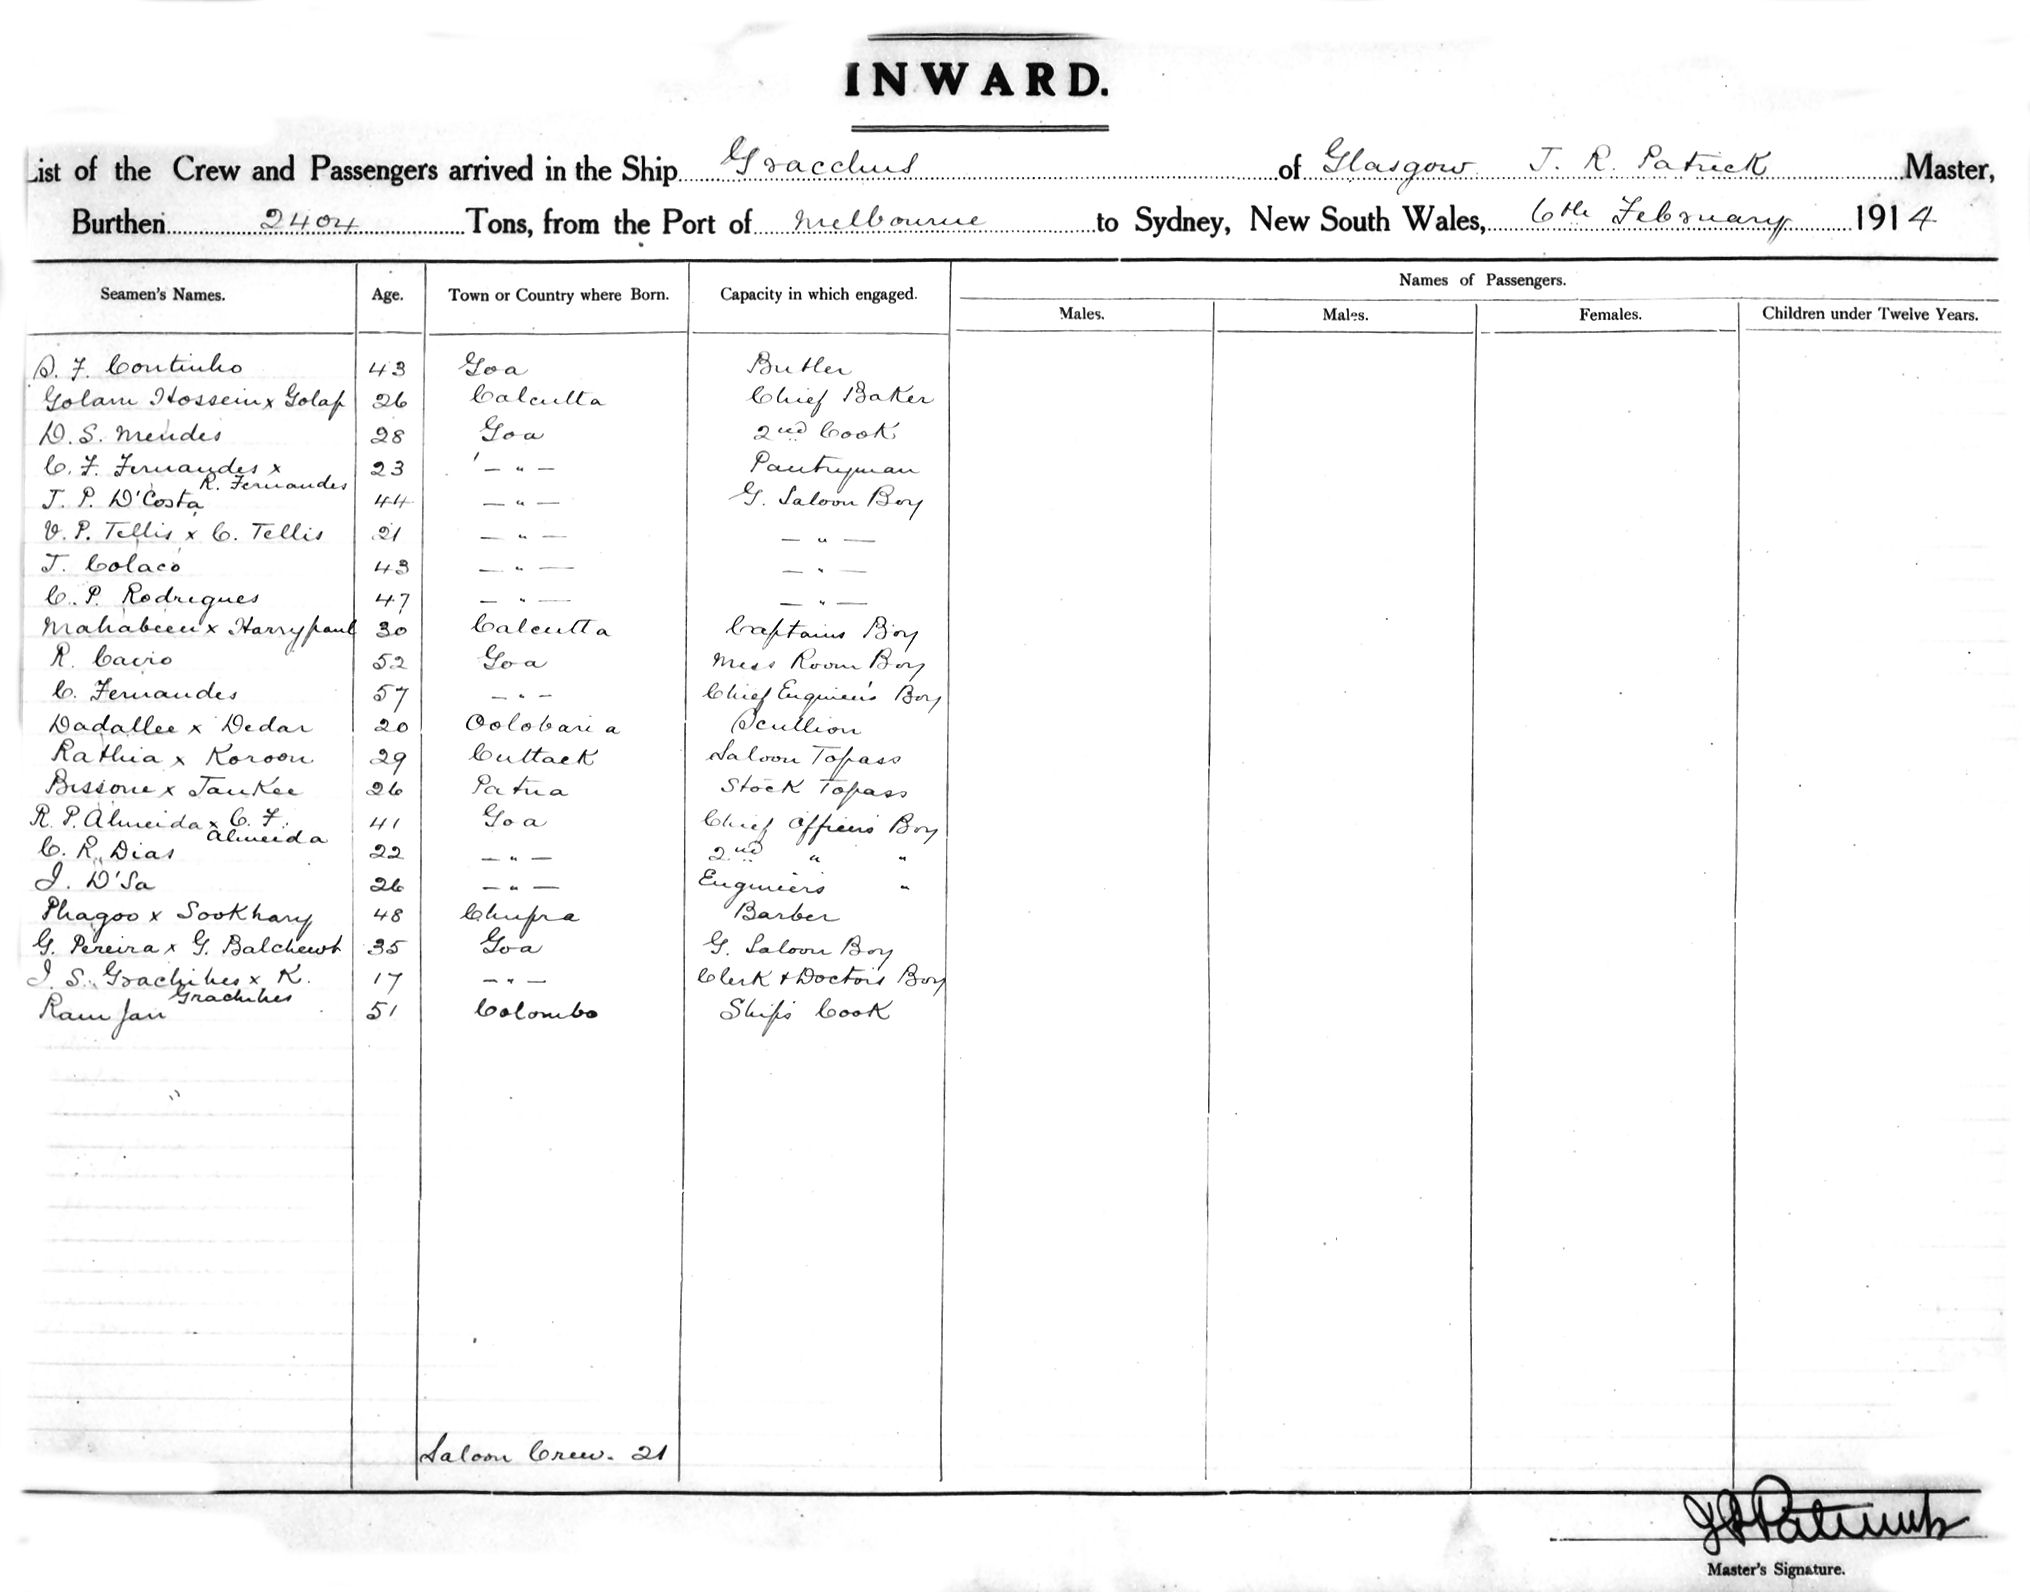 INWARD.
List of the Crew and Passengers arrived in the Ship Gracchus of Glasgow J. R. Patrick Master,
Burthen 2404 Tons, from the Port of Melbourne to Sydney, New South Wales, 6th February 1914
Names of Passengers.
Seamen's Names. Age. Town or Country where Born. Capacity in which engaged.
Males. Males. Females. Children under Twelve Years.
S. F. Continho 43 Goa Butler
Golam Hossein x Golap 26 Calcutta Chief Baker
D. S. Mendes 28 Goa 2nd Cook
C. F. Fernandes x 23 — " — Pantryman
R. Fernandes
J. P. D'Costa 44 — " — G. Saloon Boy
V. P. Tellis x C. Tellis 21 — " — — " —
J. Colaco 43 — " — — " —
C. P. Rodrigues 47 — " — — " —
Mahabeen x Harrypaul 30 Calcutta Captains Boy
R. Cairo 52 Goa Mess Room Boy
C. Fernandes 57 — " — Chief Engineer's Boy
Dadallee x Dedar 20 Oolobaria Scullion
Rathia x Koroon 29 Cuttack Saloon Topass
Bissone x Jankee 26 Patna Stock Topass
R. P. Almeida x C. F. 41 Goa Chief Officers Boy
Almeida
C. R. Dias 22 — " — 2nd " "
J. D'Sa 26 — " — Engineers "
Phagoo x Sookhary 48 Chupra Barber
G. Pereira x G. 35 Goa G. Saloon Boy
J. S. x K. 17 — " — Clerk & Doctors Boy
Ramjan 51 Colombo Ship's Cook
Saloon Crew. 21
J R Patrick
Master's Signature.